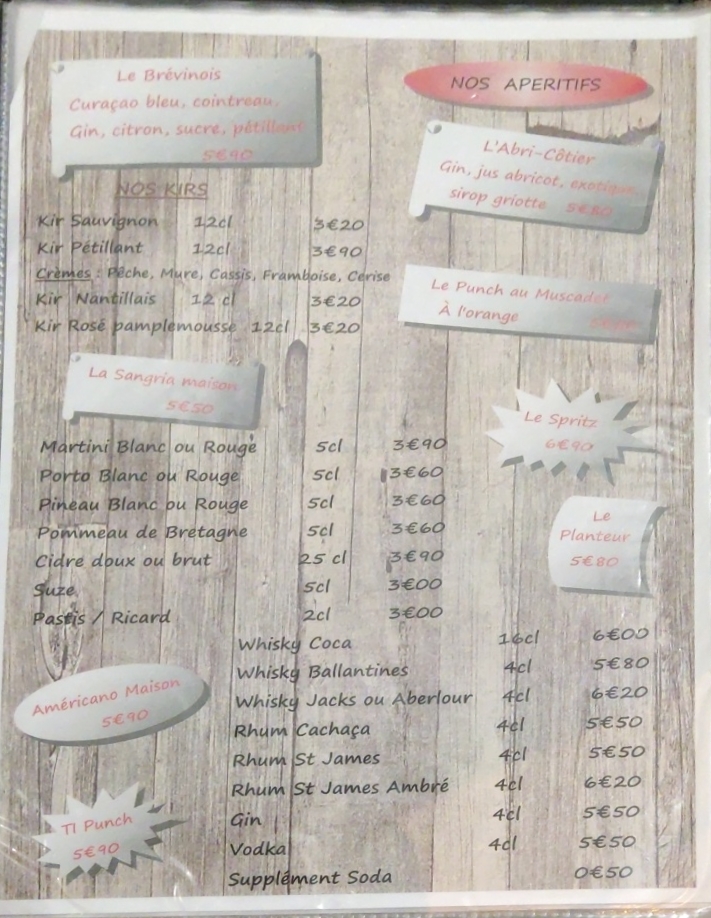 Le Brévinois
Curaçao bleu, cointreau,
Gin, citron, sucre, pétillant
5€90
NOS APERITIFS
L'Abri-Côtier
Gin, jus abricot, exotique
sirop griotte
NOS KIRS
Kir Sauvignon 12cl 3€20
Kir Pétillant 12cl 3€90
Crèmes : Pêche, Mure, Cassis, Framboise, Cerise
Kir Nantillais 12 cl 3€20
Kir Rosé pamplemousse 12cl 3€20
Le Punch au Muscadet
À l'orange
La Sangria maison
5€50
Le Spritz
6€90
Martini Blanc ou Rouge 5cl 3€90
Porto Blanc ou Rouge 5cl 3€60
Pineau Blanc ou Rouge 5cl 3€60
Pommeau de Bretagne 5cl 3€60
Cidre doux ou brut 25 cl 3€90
Suze 5cl 3€00
Pastis / Ricard 2cl 3€00
Le
Planteur
5€80
Whisky Coca 16cl 6€00
Whisky Ballantines 4cl 5€80
Whisky Jacks ou Aberlour 4cl 6€20
Rhum Cachaça 4cl 5€50
Rhum St James 4cl 5€50
Rhum St James Ambré 4cl 6€20
Gin 4cl 5€50
Vodka 4cl 5€50
Supplément Soda 0€50
Américano Maison
5€90
TI Punch
5€90